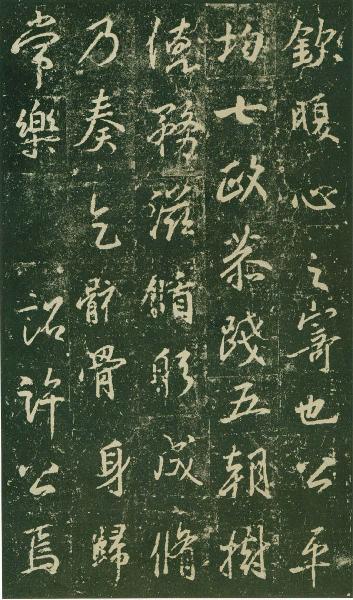 欽腹心之寄也公平
均七政恭踐五朝樹
德務滋躬成脩
乃奏乞骸骨身歸
常樂 詔許公焉